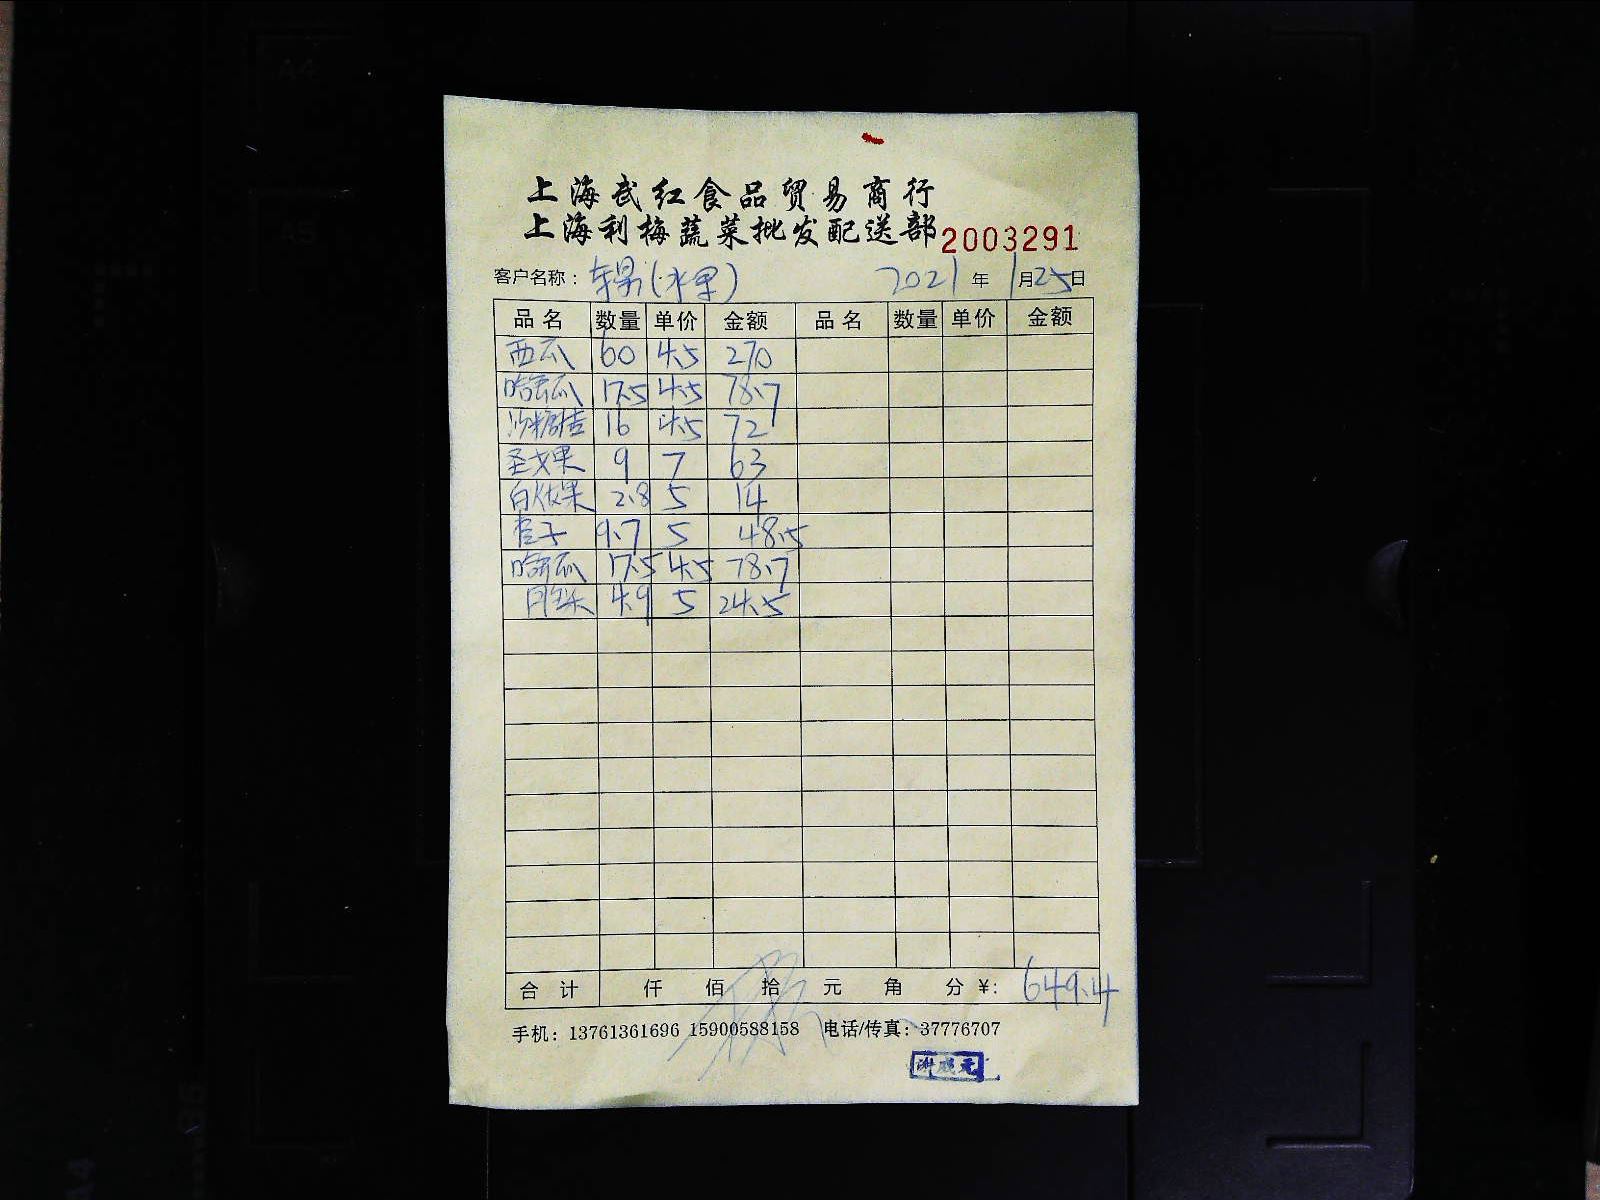 上海武红食品贸易商行
上海利梅蔬菜批发配送部 2003291
客户名称： (水果) 2021年1月25日
品名 数量 单价 金额 品名 数量 单价 金额
西瓜 60 4.5 270
哈密瓜 17.5 4.5 78.7
沙糖桔 16 4.5 72
圣女果 9 7 63
2.8 5 14
橙子 9.7 5 48.5
哈密瓜 17.5 4.5 78.7
4.9 5 24.5
合计 仟 佰 拾 元 角 分 ¥: 649.4
手机：13761361696 15900588158 电话/传真：37776707